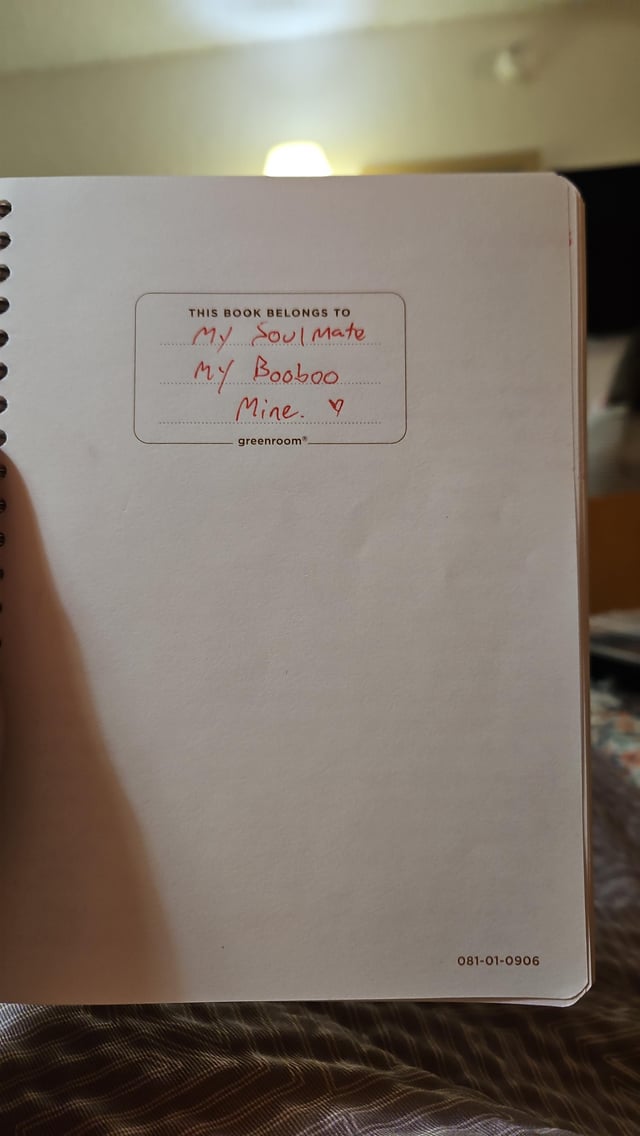 THIS BOOK BELONGS TO
My Soulmate
My Booboo
Mine. ♡
greenroom®
081-01-0906